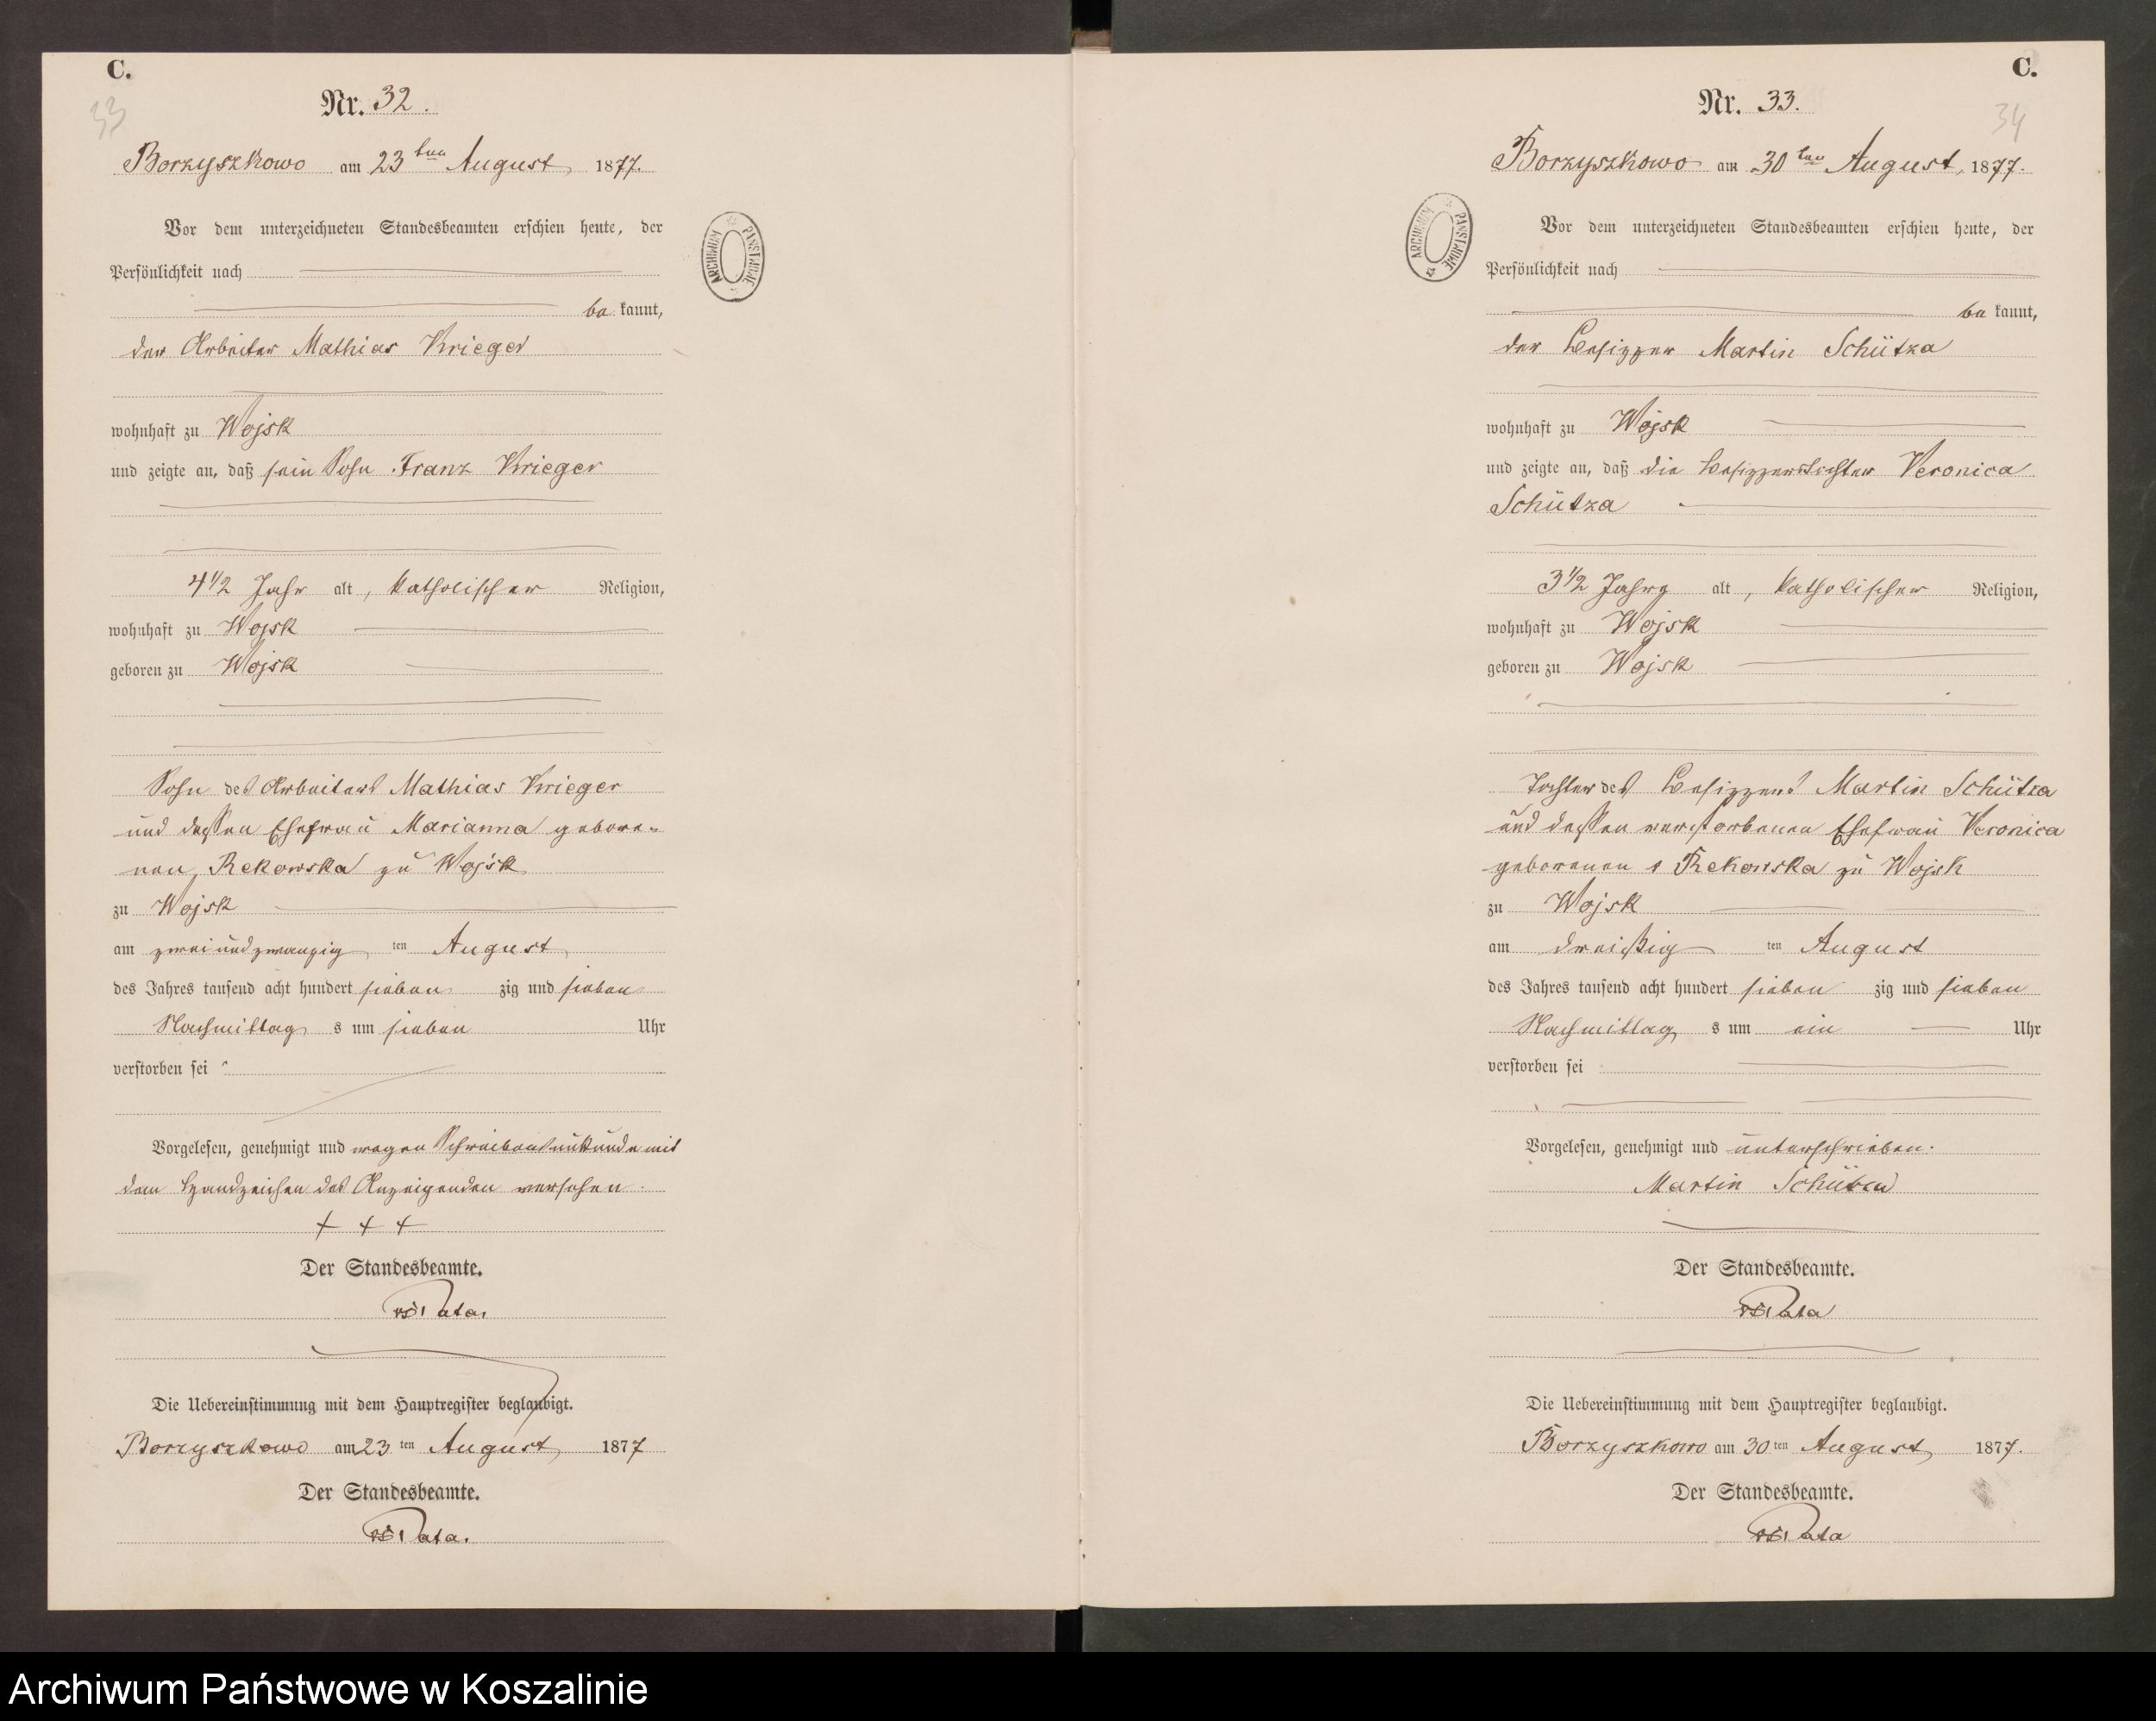 C.
33
Nr. 32.
Borzyszkowo am 23ten August 1877.
Vor dem unterzeichneten Standesbeamten erschien heute, der
Persönlichkeit nach
be kannt,
der Arbeiter Mathias Krieger
wohnhaft zu Wojsk
und zeigte an, daß sein Sohn Franz Krieger
4 1/2 Jahr alt, katholischer Religion,
wohnhaft zu Wojsk
geboren zu Wojsk
Sohn des Arbeiters Mathias Krieger
und dessen Ehefrau Marianna gebore-
nen, Rekowska zu Wojsk
zu Wojsk
am zweiundzwanzig ten August
des Jahres tausend acht hundert sieben zig und sieben
Nachmittag s um sieben Uhr
verstorben sei
Vorgelesen, genehmigt und wegen Schreibensunkunde mit
dem Handzeichen des Anzeigenden versehen.
+ + +
Der Standesbeamte.
Die Uebereinstimmung mit dem Hauptregister beglaubigt.
Borzyszkowo am 23 ten August 1877
Der Standesbeamte.
ARCHIWUM PAŃSTWOWE
C.
34
Nr. 33.
Borzyszkowo am 30ten August, 1877.
Vor dem unterzeichneten Standesbeamten erschien heute, der
Persönlichkeit nach
be kannt,
der Besitzer Martin Schütza
wohnhaft zu Wojsk
und zeigte an, daß die Besitzerstochter Veronica
Schütza
3 1/2 Jahre alt, katholischer Religion,
wohnhaft zu Wojsk
geboren zu Wojsk
Tochter des Besitzers Martin Schütza
und dessen verstorbenen Ehefrau Veronica
geborenen Rekowska zu Wojsk
zu Wojsk
am dreißig ten August
des Jahres tausend acht hundert sieben zig und sieben
Nachmittag s um ein Uhr
verstorben sei
Vorgelesen, genehmigt und unterschrieben.
Martin
Der Standesbeamte.
Die Uebereinstimmung mit dem Hauptregister beglaubigt.
Borzyszkowo am 30 ten August 1877.
Der Standesbeamte.
ARCHIWUM PAŃSTWOWE
Archiwum Państwowe w Koszalinie